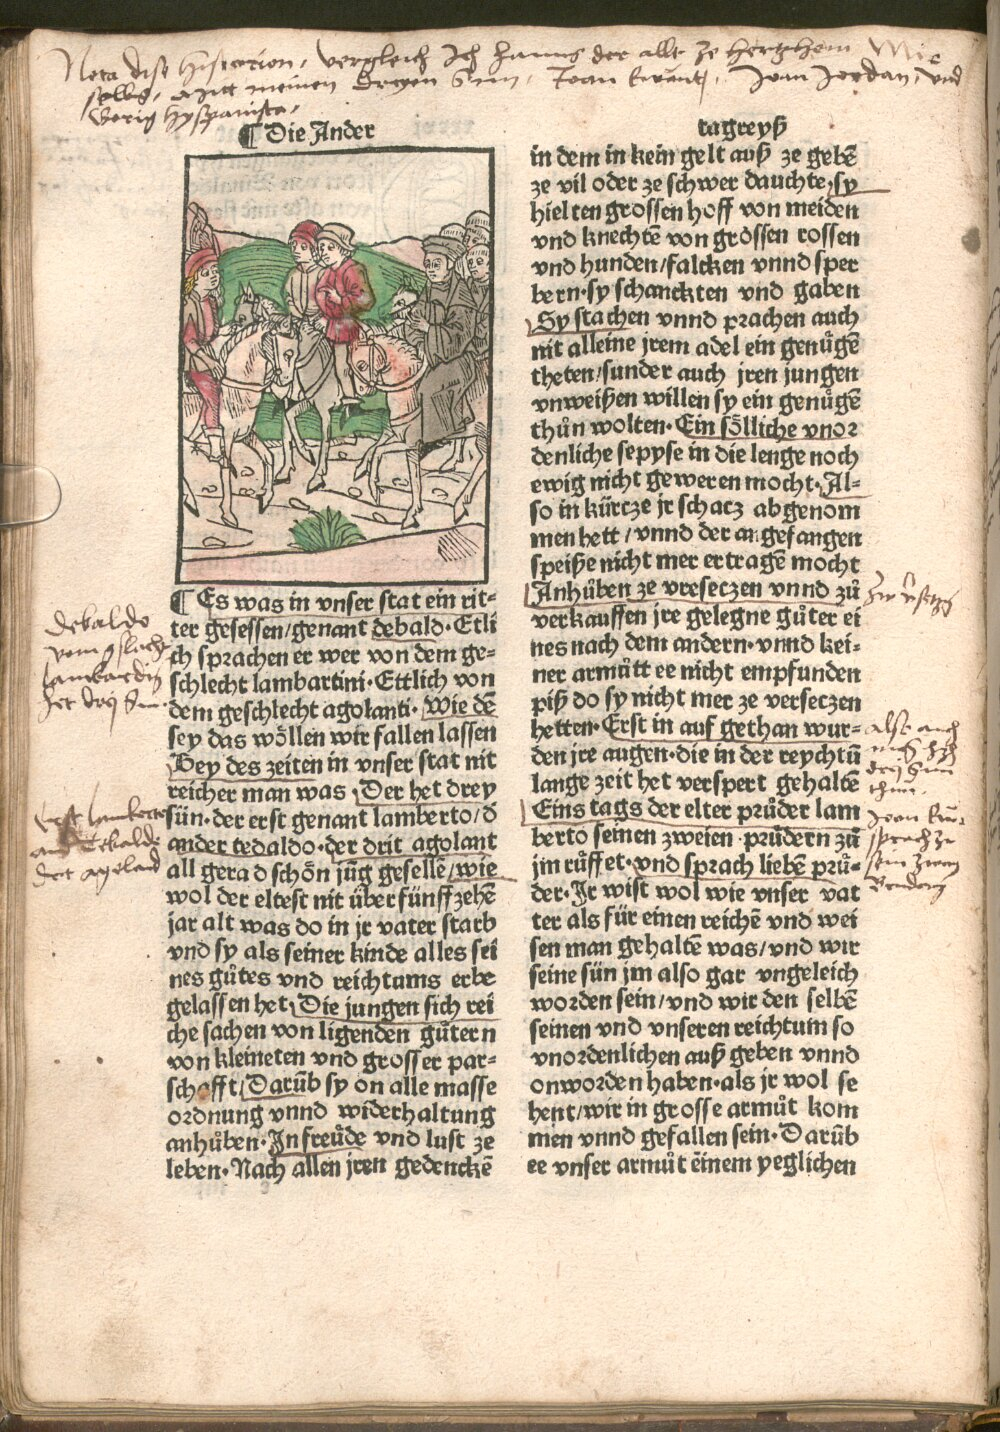 Nota dise historien, vergleich Ich hanns der allt ze hertzhem Mir
selbs, Mitt meinen dreyen Sün, Joan Jordan, vnd
¶ Die Ander
¶ Es was in vnser stat ein rit⸗
ter gesessen/genant debald· Etli
ch sprachen er wer von dem ge⸗
schlecht lambartini· Ettlich von
dem geschlecht agolanti· wie dē
sey das wöllen wir fallen lassen
Bey des zeiten in vnser stat nit
reicher man was Der het drey
sün· der erst genant lamberto/d̄
ander tedaldo·der drit agolant
all gerad schön jūg gesellē/wie
wol der eltest nit über fünffzehē
jar alt was do in jr vater starb
vnd sy als seiner kinde alles sei
nes gůtes vnd reichtums erbe
gelassen het Die jungen sich rei
che sachen von ligenden gütern
von kleineten vnd grosser par⸗
schafft/Darūb sy on alle masse
ordnung vnnd widerhaltung
anhůben· In freüde vnd lust ze
leben· Nach allen jren gedenckē
tagreyß
in dem in kein gelt auß ze gebē
ze vil oder ze schwer dauchte/sy
hielten grossen hoff von meiden
vnd knechtē von grössen rossen
vnd hunden/falcken vnnd sper
bern·sy schanckten vnd gaben
Sy stachen vnnd prachen auch
nit alleine jrem adel ein genügē
theten/sunder auch jren jungen
vnweißen willen sy ein genügē
thůn wolten· Ein sölliche vnor
denliche sepyse in die lenge noch
ewig nicht geweren mocht· Al⸗
so in kürcze jr schacz abgenom
men hett/vnnd der angefangen
speiße nicht mer ertragē mocht
Anhůben ze verseczen vnnd zů
verkauffen jre gelegne güter ei
nes nach dem andern· vnnd kei⸗
ner armůtt ee nicht empfunden
piß do sy nicht mer ze verseczen
hetten· Erst in auf gethan wur⸗
den jre augen·die in der reychtū
lange zeit het verspert gehaltē
Eins tags der elter průder lam
berto seinen zweien prüdern zů
jm růffet·vnd sprach lieben prü⸗
der· Ir wist wol wie vnser vat
ter als für einen reichē vnd wei
sen man gehaltē was/vnd wir
seine sün jm also gar vngeleich
worden sein/vnd wir den selbē
seinen vnd vnseren reichtum so
vnordenlichen auß geben vnnd
onworden haben·als jr wol se
hent/wir in grosse armůt kom
men vnnd gefallen sein· Darūb
ee vnser armůt einem yeglichen